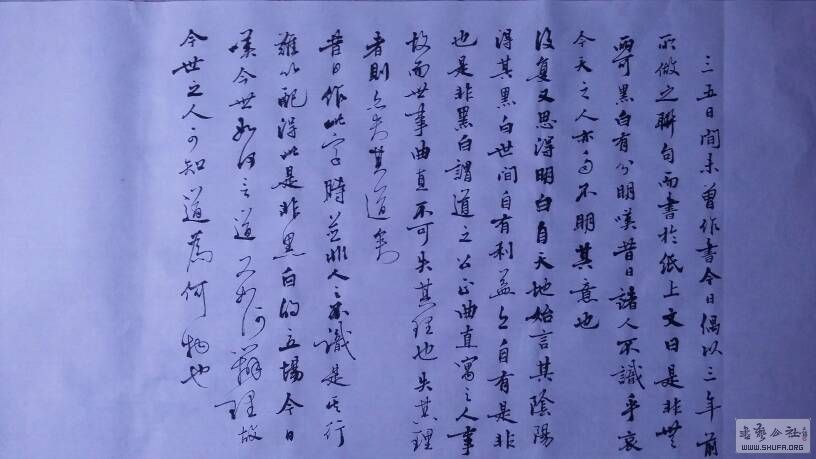 三五日間未曾作書今日偶以三年前
所做之聯句而書於紙上文曰是非無
黑白有分明嘆昔日諸人不識乎哀
今天之人亦不明其意也
後复又思得明白自天地始言其陰陽
得其黑白世間自有利益之自有是非
也是非黑白謂道之公正曲直寓之人事
故而世事曲直不可失其理也失其理
者則亦失其道矣
昔日作此字時並非人之不識是其行
難以配得此是非黑白的立場今日
嘆今世如何言道又如何辯理故
今世之人可知道為何物也
書藝公社
WWW.SHUFA.ORG